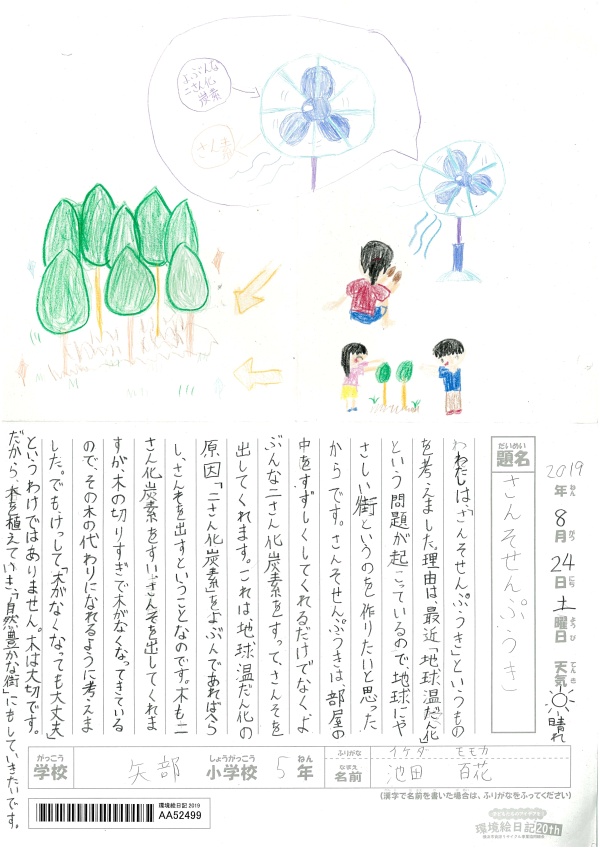 よぶんな
二さん化
炭素
さん素
2019
年 ねん
8
月 がつ
24
日 にち
土
曜日 ようび
天気 てんき
晴れ
題名 だいめい
さんそせんぷうき
わたしは「さんそせんぷうき」というもの
を考えました。理由は、最近「地球温だん化」
という問題が起こっているので、地球にや
さしい街というのを作りたいと思った
からです。さんそせんぷうきは、部屋の
中をすずしくしてくれるだけでなく、よ
ぶんな二さん化炭素をすって、さんそを
出してくれます。これは、地球温だん化の
原因「二さん化炭素」をよぶんであればへら
し、さんそを出すということなのです。木も二
さん化炭素をすい、さんそを出してくれま
すが、木の切りすぎで木がなくなってきている
ので、その木の代わりになれるように考えま
した。でも、けっして「木がなくなっても大丈夫」
というわけではありません。木は大切です。
だから、木を植えていき、「自然豊かな街」にもしていきたいです。
学校 がっこう
矢部 小学校 しょうがっこう 5 年 ねん
ふりがな イケダ モモカ
名前 なまえ 池田 百花
(漢字で名前を書いた場合は、ふりがなをふってください)
環境絵日記 2019
AA52499
環境絵日記 20th